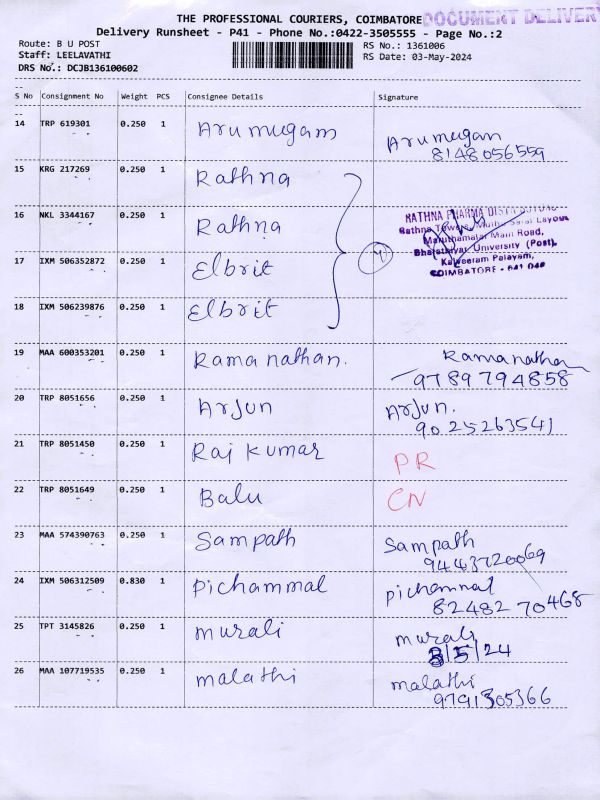 THE PROFESSIONAL COURIERS, COIMBATORE
DOCUMENT DELIVERY
Delivery Runsheet - P41 - Phone No.:0422-3505555 - Page No.:2
Route: B U POST
RS No.: 1361006
Staff: LEELAVATHI
RS Date: 03-May-2024
DRS No.: DCJB136100602
S No Consignment No Weight PCS Consignee Details Signature
14 TRP 619301 0.250 1 Arumugam Arumugam
8148056559
15 KRG 217269 0.250 1 Rathna
16 NKL 3344167 0.250 1 Rathna
RATHNA PHARMA
Rathna Towers, Layout
Maruthamalai Main Road,
17 IXM 506352872 0.250 1 Elbrit 4
Bharathiyar University (Post),
Kalveeram Palayam,
COIMBATORE - 641 046
18 IXM 506239876 0.250 1 Elbrit
19 MAA 600353201 0.250 1 Ramanathan. Ramanathan
9789794858
20 TRP 8051656 0.250 1 Arjun Arjun.
9025263541
21 TRP 8051450 0.250 1 Raj kumar PR
22 TRP 8051649 0.250 1 Balu CN
23 MAA 574390763 0.250 1 Sampath Sampath
9443720069
24 IXM 506312509 0.830 1 Pichammal Pichammal
82482 70468
25 TPT 3145826 0.250 1 murali murali
3/5/24
26 MAA 107719535 0.250 1 malathi malathi
9791305366